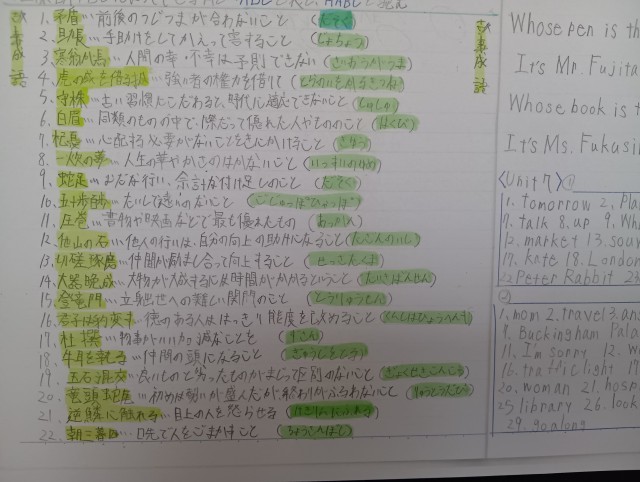 故事成語
1. 矛盾…前後のつじつまが合わないこと
2. 助長…手助けをしてかえって害すること (じょちょう)
3. 塞翁が馬…人間の幸・不幸は予測できない (さいおうがうま)
4. 虎の威を借る狐…強い者の権力を借りて
5. 守株…古い習慣にこだわると、時代に適応できないこと (しゅしゅ)
6. 白眉…同類のものの中で1際だって優れた人やもののこと (はくび)
7. 杞憂…心配する必要がないことを気にかけること (きゆう)
8. 一炊の夢…人生の華やかさのはかないこと (いっすいのゆめ)
9. 蛇足…むだな行い、余計な付け足しのこと (だそく)
10. 五十歩百歩…たいして違いのないこと (ごじゅっぽひゃっぽ)
11. 圧巻…書物や映画などで最も優れたもの (あっかん)
12. 他山の石…他人の行いは、自分の向上の助けになること (たざんのいし)
13. 切磋琢磨…仲間が励まし合って向上すること (せっさたくま)
14. 大器晩成…大物が大成するには時間がかかるということ (たいきばんせい)
15. 登竜門…立身出世への難しい関門のこと (とうりゅうもん)
16. 君子は豹変す…徳のある人ははっきり態度を改めること
17. 杜撰…物事がいいかげんなことを (ずさん)
18. 牛耳を執る…仲間の頭になること (ぎゅうじをとる)
19. 玉石混交…良いものと劣ったものがまじって区別のないこと (ぎょくせきこんこう)
20. 竜頭蛇尾…初めは勢いが盛んだが終わりがふるわないこと (りゅうとうだび)
21. 逆鱗に触れる…目上の人を怒らせる (げきりんにふれる)
22. 朝三暮四…口先で人をごまかすこと (ちょうさんぼし)
故事成語
Whose pen is th
It's Mr. Fujita
Whose book is th
It's Ms. Fukusi
〈Unit 7〉①
1. tomorrow 2. Pla
7. talk 8. up 9. Wh
12. market 13. soun
17. Kate 18. London
22 Peter Rabbit 2
②
1. mom 2. travel 3. ans
8. Buckingham Pala
11. I'm sorry 12. w
16. traffic light 17
20. woman 21. hosp
25 library 26. look
29. go along